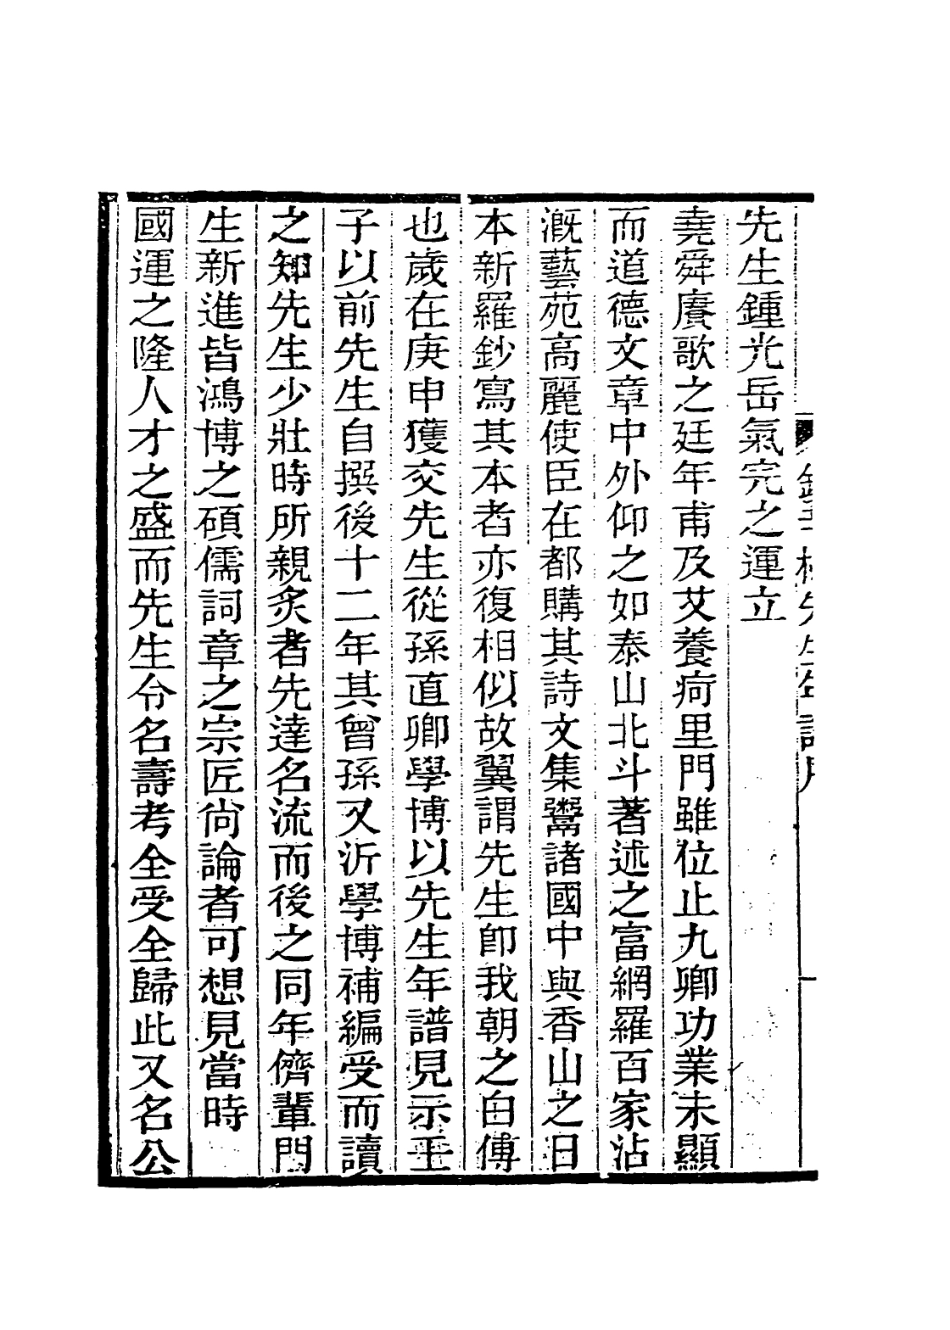 先生鍾光岳氣完之運立
堯舜賡歌之廷年甫及艾養疴里門雖位止九卿功業未顯
而道德文章中外仰之如泰山北斗著述之富網羅百家沾
漑藝苑高麗使臣在都購其詩文集鬻諸國中與香山之日
本新羅鈔寫其本者亦復相似故翼謂先生卽我朝之白傅
也歲在庚申獲交先生從孫直卿學博以先生年譜見示壬
子以前先生自撰後十二年其曾孫又沂學博補編受而讀
之知先生少壯時所親炙者先達名流而後之同年儕輩門
生新進皆鴻博之碩儒詞章之宗匠尙論者可想見當時
國運之隆人才之盛而先生令名壽考全受全歸此又名公